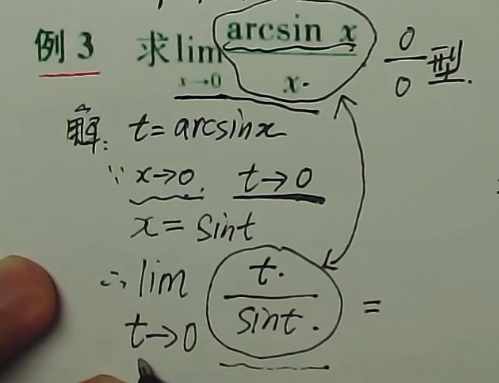 例3 求 lim x→0 arcsin x / x. 0/0 型.
解: t = arcsinx
∵ x→0. t→0
x = sint
∴ lim t→0 t. / sint. =